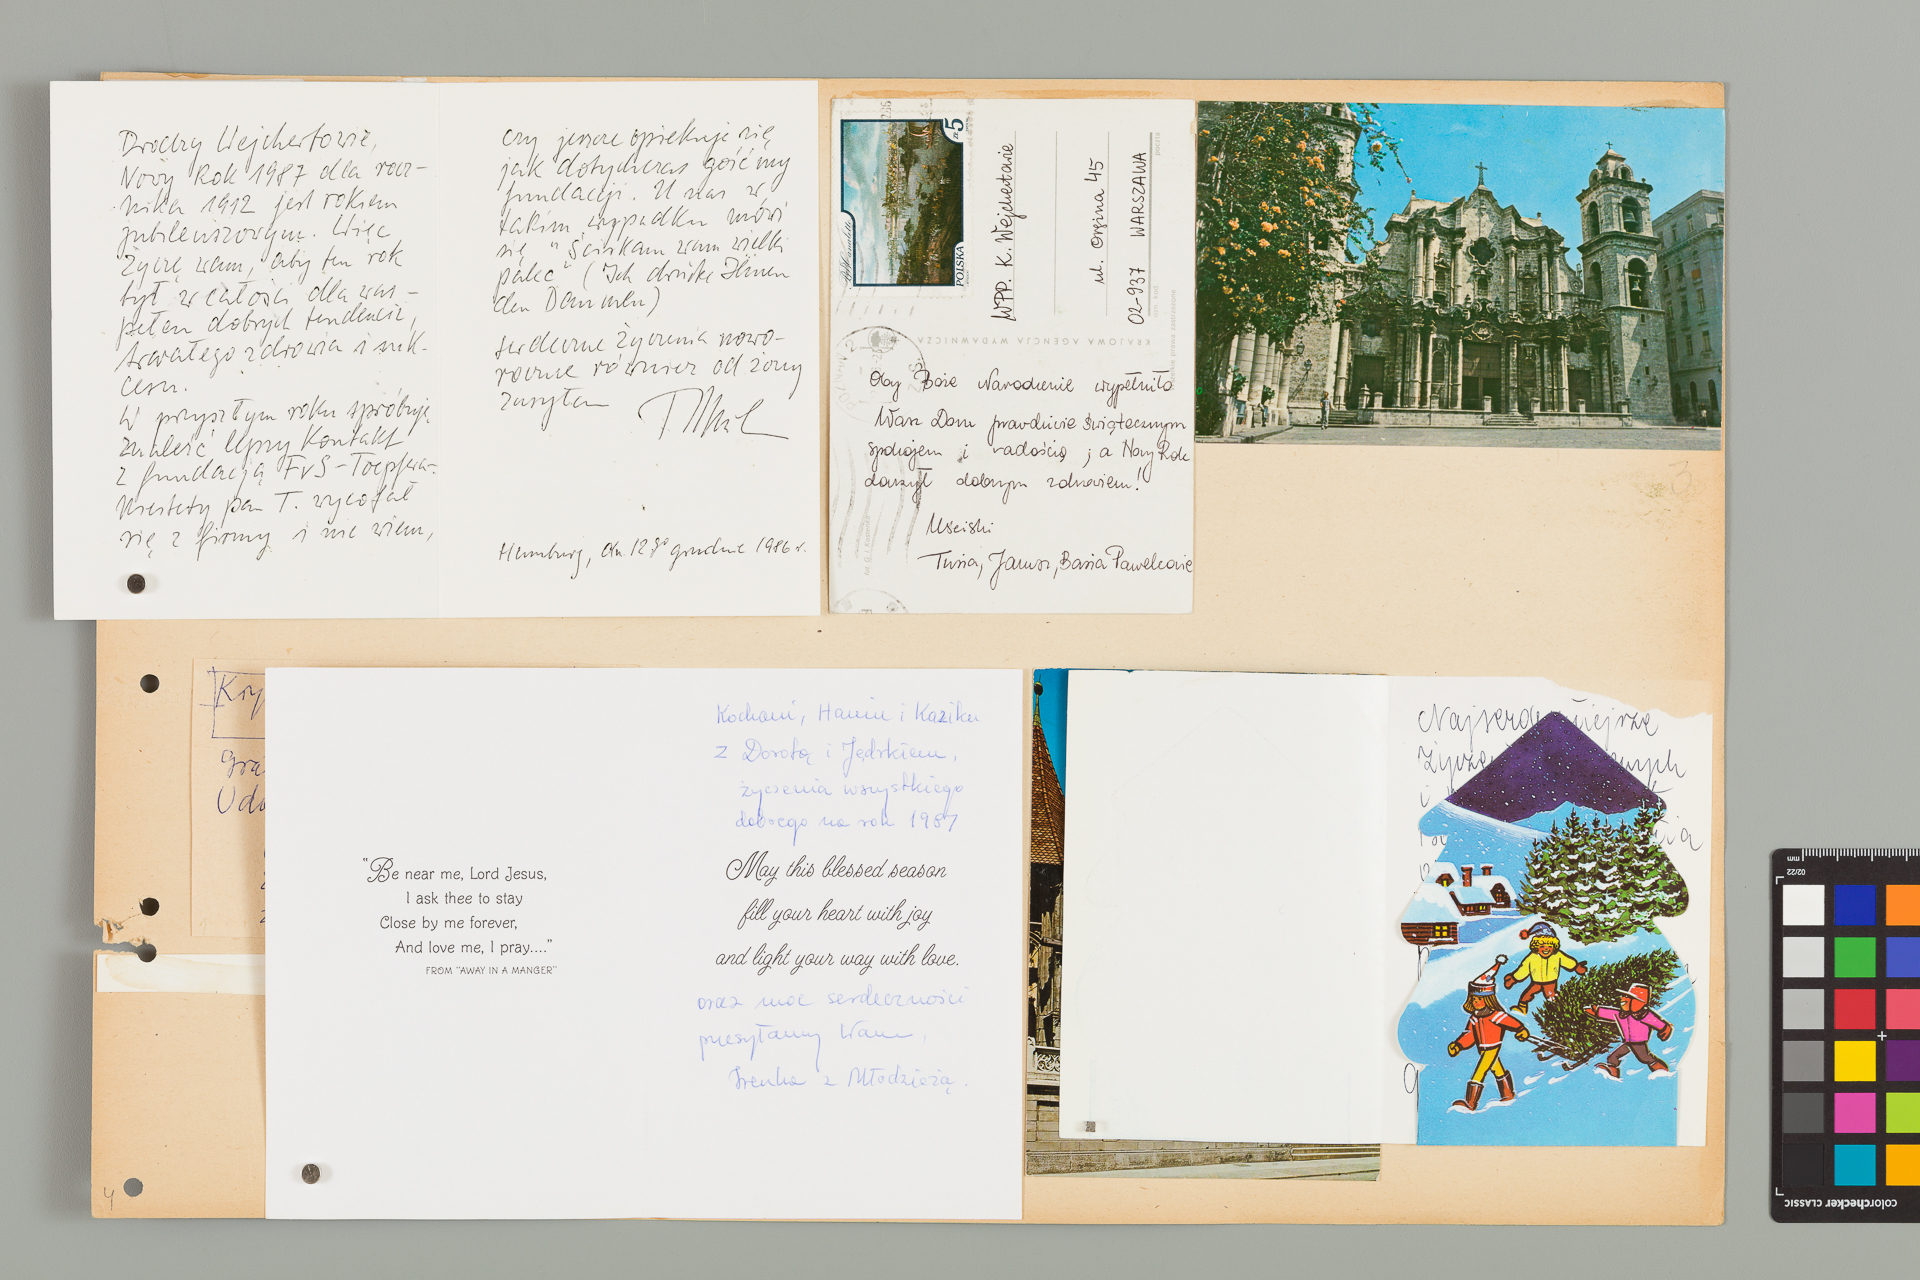 Drodzy Wejchertowie,
Nowy Rok 1987 dla rocz-
nika 1912 jest rokiem
jubileuszowym. Więc
życzę wam, aby ten rok
był w całości dla was -
pełen dobrych tendencji,
trwałego zdrowia i suk-
cesu.
W przyszłym roku spróbuję
znaleść lepszy kontakt
z fundacją FvS-Toepfera.
Niestety pan T. wycofał
się z firmy i nie wiem,
czy jeszcze opiekuje się
jak dotychczas gośćmy
fundacji. U nas w
takim wypadku mówi
się "Ściskam wam wielki
palec" (Ich drücke Ihnen
den Daumen)
Serdeczne życzenia nowo-
roczne również od żony
zasyłam
Hamburg, dn. 12go grudnia 1986 r.
5 zł
POLSKA
WPP. K. Wejchertowie
ul. Oręzna 45
02-937 WARSZAWA
poczta
KRAJOWA AGENCJA WYDAWNICZA
Oby Boże Narodzenie wypełniło
Wasz Dom prawdziwie świątecznym
spokojem i radością, a Nowy Rok
darzył dobrym zdrowiem!
Uściski
Tusia, Janusz, Basia Pawelcowie
Kry
Gra
Udo
Kochani, Haniu i Kaziku
z Dorotą i Jędrkiem,
życzenia wszystkiego
dobrego na rok 1987
"Be near me, Lord Jesus,
I ask thee to stay
Close by me forever,
And love me, I pray...."
FROM "AWAY IN A MANGER"
May this blessed season
fill your heart with joy
and light your way with love.
oraz moc serdeczności
przesyłamy Wam,
Irenka z Młodzieżą.
Najserdeczniejsze
4
mm
02/22
colorchecker CLASSIC